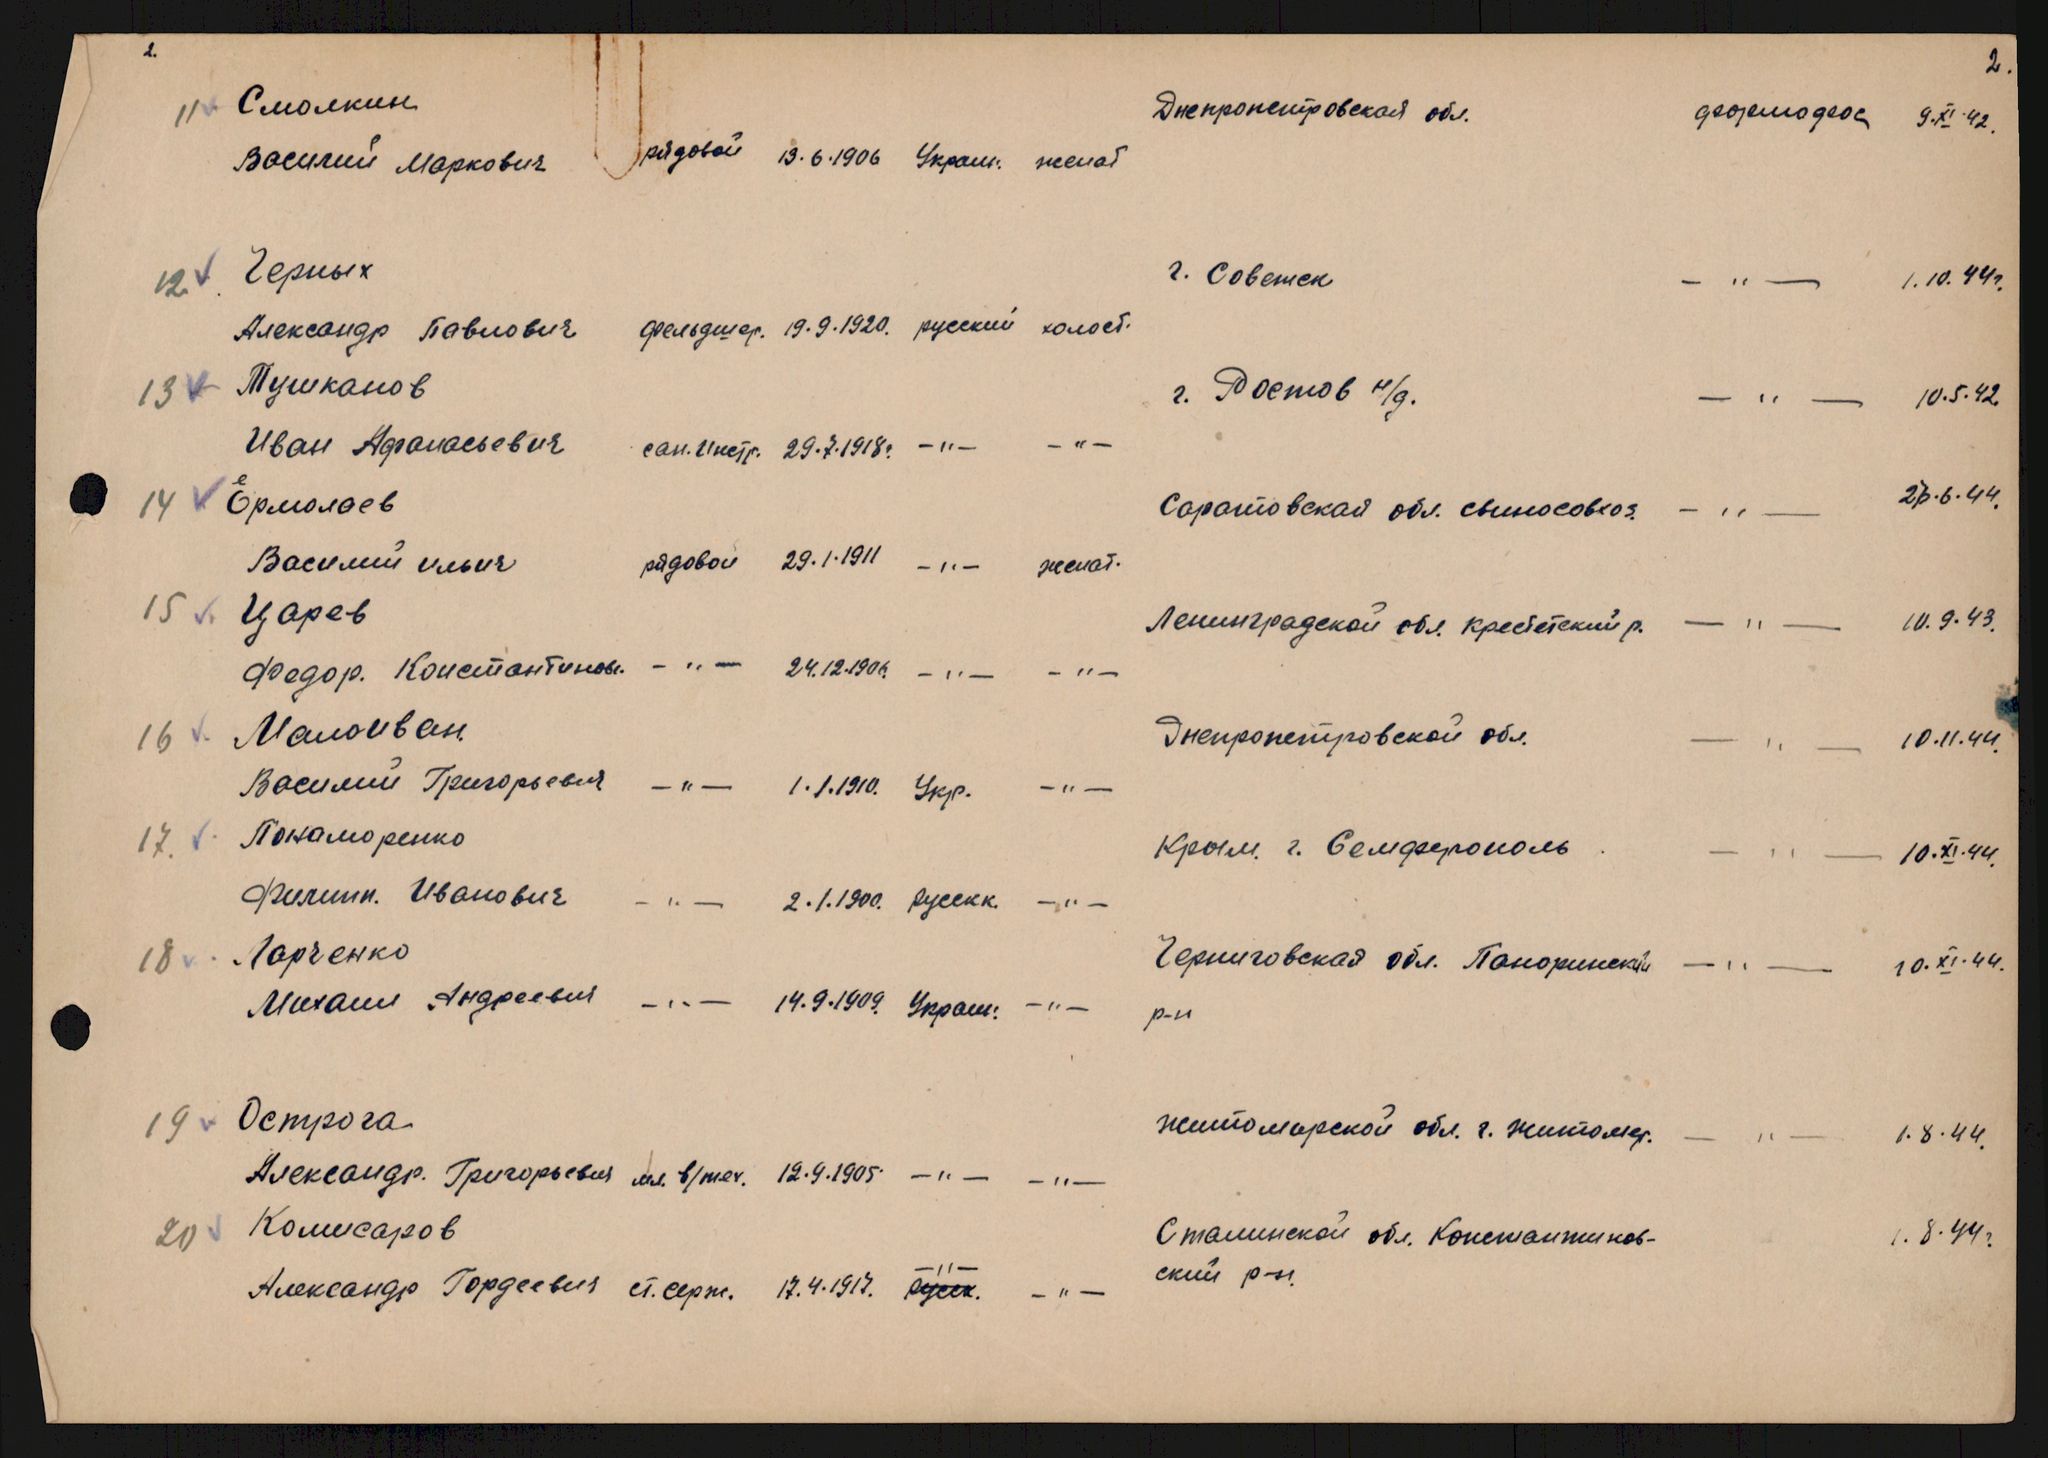 2. 2.
11 Смолкин Днепропетровская обл. 9.XI.42.
Василий Маркович рядовой 19.6.1906 Украин. женат
12. Черных г. Советск — " — 1.10.44г.
Александр Павлович фельдшер. 19.9.1920. русский холост.
13 Тушканов г. Ростов н/д. — " — 10.5.42.
Иван Афанасьевич сан.инстр. 29.7.1918г. — " — — " —
14 Ермолаев Саратовская обл. свиносовхоз. — " — .6.44.
Василий ильич рядовой 29.1.1911 — " — женат.
15 Царев Ленинградской обл. крестетский р. — " — 10.9.43.
Федор. Константинов. — " — 24.12.1906. — " — — " —
16 Малоиван. Днепропетровской обл. — " — 10.11.44.
Василий Григорьевич — " — 1.1.1910. Укр. — " —
17. Понаморенко Крым. г. Семферополь — " — 10.XI.44.
Филипп. Иванович — " — 2.1.1900. Русскк. — " —
18 Ларченко Черниговская обл. Поноринский — " — 10.XI.44.
Михаил Андреевич — " — 14.9.1909. Украин. — " — р-н
19 Острога Житомирской обл. г. Житомер. — " — 1.8.44.
Александр. Григорьевич мл. в/тех. 12.9.1905 — " — — " —
20 Комисаров Сталинской обл. Константинов- 1.8.44г.
— " — ский р-н.
Александр Гордеевич ст. серж. 17.4.1917. Русск. — " —